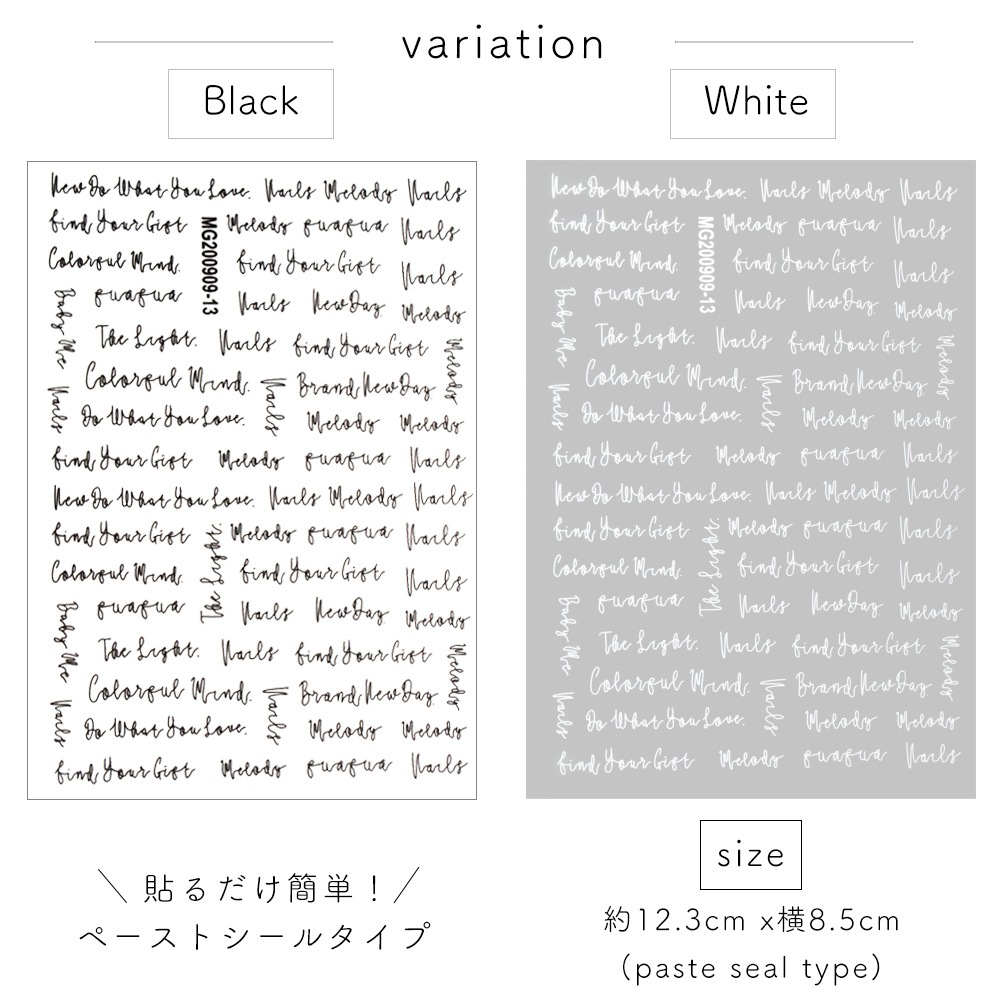 variation
Black
White
New Do What You Love. Nails Melody Nails
find Your Gift Melody fuafua Nails
MG200909-13
Colorful Mind. find Your Gift Nails
Baby Me
fuafua Nails New Day Melody
The Light. Nails find Your Gift
Melody
Colorful Mind. Nails Brand New Day
Nails
Do What You Love. Melody Melody
find Your Gift Melody fuafua Nails
New Do What You Love. Nails Melody Nails
find Your Gift Melody fuafua Nails
The Light.
Colorful Mind. find Your Gift Nails
Baby Me
fuafua Nails New Day Melody
The Light. Nails find Your Gift
Melody
Colorful Mind. Nails Brand New Day
Nails
Do What You Love. Melody Melody
find Your Gift Melody fuafua Nails
New Do What You Love. Nails Melody Nails
find Your Gift Melody fuafua Nails
MG200909-13
Colorful Mind. find Your Gift Nails
Baby Me
fuafua Nails New Day Melody
The Light. Nails find Your Gift
Melody
Colorful Mind. Nails Brand New Day
Nails
Do What You Love. Melody Melody
find Your Gift Melody fuafua Nails
New Do What You Love. Nails Melody Nails
find Your Gift Melody fuafua Nails
The Light.
Colorful Mind. find Your Gift Nails
Baby Me
fuafua Nails New Day Melody
The Light. Nails find Your Gift
Melody
Colorful Mind. Nails Brand New Day
Nails
Do What You Love. Melody Melody
find Your Gift Melody fuafua Nails
＼ 貼るだけ簡単！／
ペーストシールタイプ
size
約12.3cm x横8.5cm
(paste seal type)